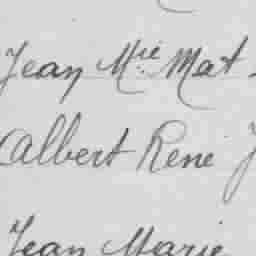 Jean Mie Mat
Albert René J
Jean Marie